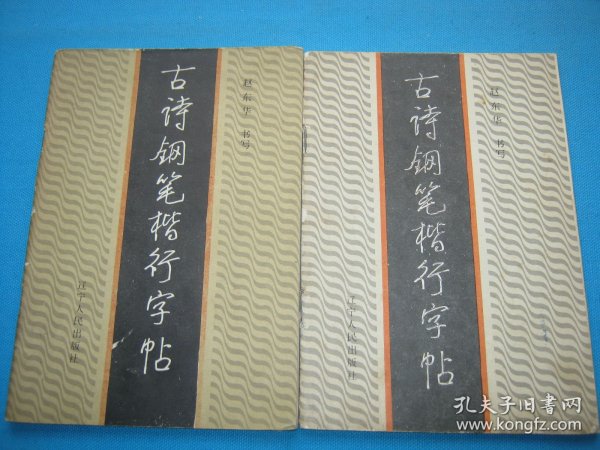 古诗钢笔楷行字帖
赵东华 书写
辽宁人民出版社
古诗钢笔楷行字帖
赵东华 书写
辽宁人民出版社
孔夫子旧書网
www.kongfz.com